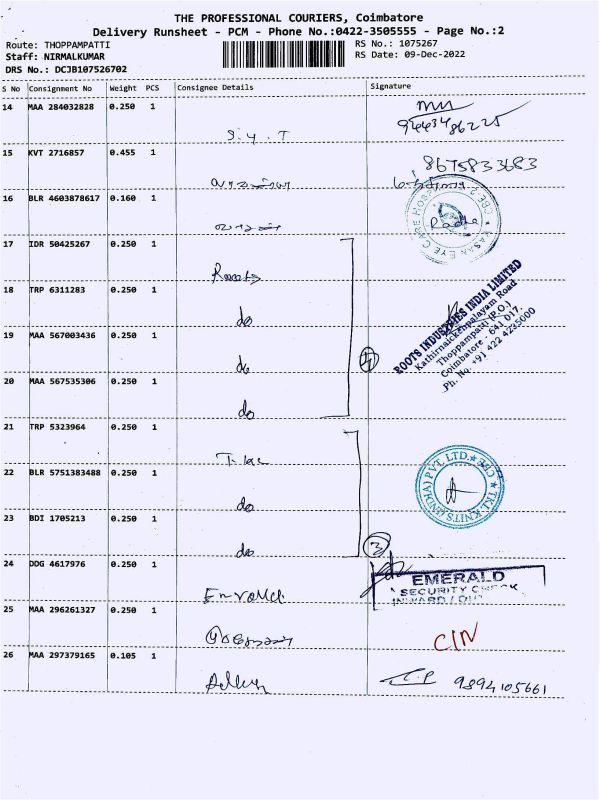 THE PROFESSIONAL COURIERS, Coimbatore
Delivery Runsheet - PCM - Phone No.:0422-3505555 - Page No.:2
Route: THOPPAMPATTI
RS No.: 1075267
Staff: NIRMALKUMAR
RS Date: 09-Dec-2022
DRS No.: DCJB107526702
S No Consignment No Weight PCS Consignee Details Signature
14 MAA 284032828 0.250 1
9443486225
S.Y.T
15 KVT 2716857 0.455 1
8675833683
16 BLR 4603878617 0.160 1
VASAN EYE CARE HOSPITAL CBE-2
Radha
17 IDR 50425267 0.250 1
Roots
18 TRP 6311283 0.250 1
do
ROOTS INDUSTRIES INDIA LIMITED
Kathirnaickenpalayam Road
Thoppampatti (P.O.)
Coimbatore - 641 017.
Ph. No. +91 422 4235000
19 MAA 567003436 0.250 1
do
4
20 MAA 567535306 0.250 1
do
21 TRP 5323964 0.250 1
TKL KNITS (INDIA) PVT. LTD. ★ CBE ★
22 BLR 5751383488 0.250 1
do
23 BDI 1705213 0.250 1
do
3
24 DDG 4617976 0.250 1
EMERALD
SECURITY CHECK
INWARD / OUT
25 MAA 296261327 0.250 1
CIN
26 MAA 297379165 0.105 1
9894105661